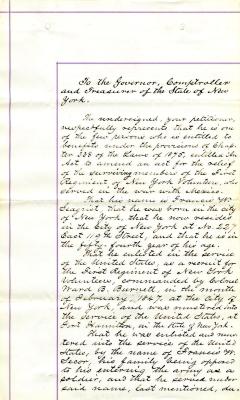 To the Governor, Comptroller
and Treasurer of the State of New
York.
The undersigned, your petitioner,
respectfully represents that he is one
of the few persons who is entitled to
benefits under the provisions of Chap-
ter 338 of the Laws of 1875, entitled An
Act to amend an act for the relief
of the surviving members of the First
Regiment of New York Volunteers, who
served in the war with Mexico.
That his name is Francis W.
that he was born in the city
of New York, that he now resides
in the City of New York at No. 227
East 110th Street, and that he is in
the fifty-fourth year of his age.
That he enlisted in the service
of the United States, as a recruit for
the First Regiment of New York
Volunteers, commanded by Colonel
Ward B. Burnett, in the month
of February, 1847, at the City of
New York, and was mustered into
the Service of the United States, at
Fort Hamilton, in the State of New York.
That he was enlisted and mus-
tered into the service of the United
States, by the name of Francis W.
his family being opposed
to his entering the army as a
soldier, and that he served under
said name, last mentioned, du-